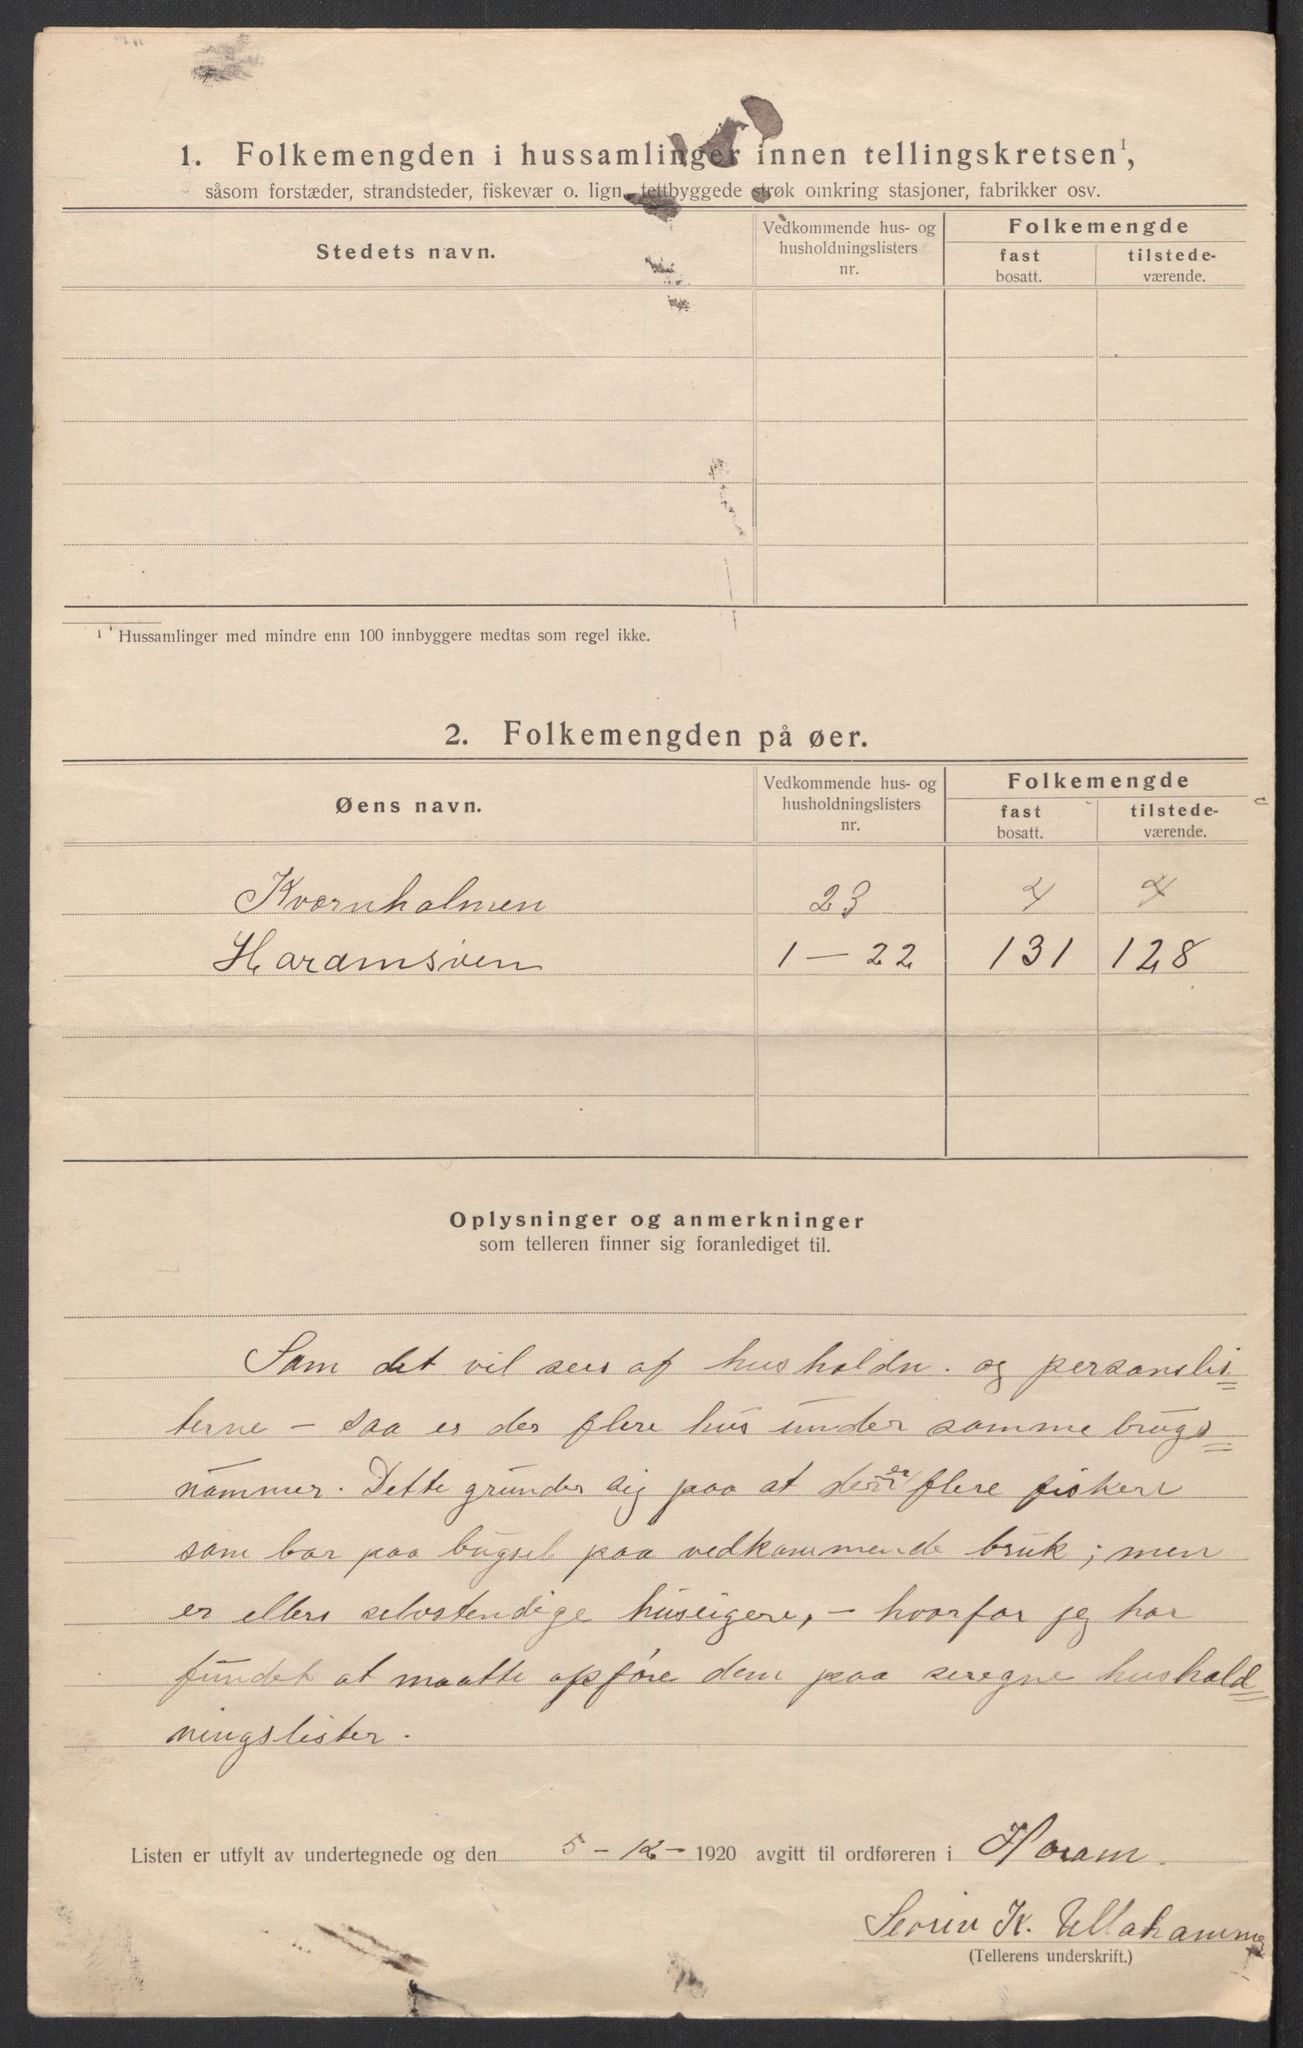 1. Folkemengden i hussamlinger innen tellingskretsen¹,
såsom forstæder, strandsteder, fiskevær o. lign. tettbyggede strøk omkring stasjoner, fabrikker osv.
Stedets navn.
Vedkommende hus- og husholdningslisters nr.
Folkemengde
fast bosatt.
tilstede-værende.
¹ Hussamlinger med mindre enn 100 innbyggere medtas som regel ikke.
2. Folkemengden på øer.
Øens navn.
Vedkommende hus- og husholdningslisters nr.
Folkemengde
fast bosatt.
tilstede-værende.
Kvernholmen 23 4 4
Haramsøen 1 — 22 131 128
Oplysninger og anmerkninger
som telleren finner sig foranlediget til.
Som det vil sees af husholdn. og personslis=
terne – saa er der flere hus under samme brugs=
nummer. Dette grunder sig paa at der er flere fiskere
som bor paa bugsel paa vedkommende bruk; men
er ellers selvstendige huseigere, – hvorfor jeg har
fundet at maatte opføre dem paa seregne hushold=
ningslister.
Listen er utfylt av undertegnede og den 5 – 12 – 1920 avgitt til ordføreren i Haram.
Severin K. Ullahammer
(Tellerens underskrift.)